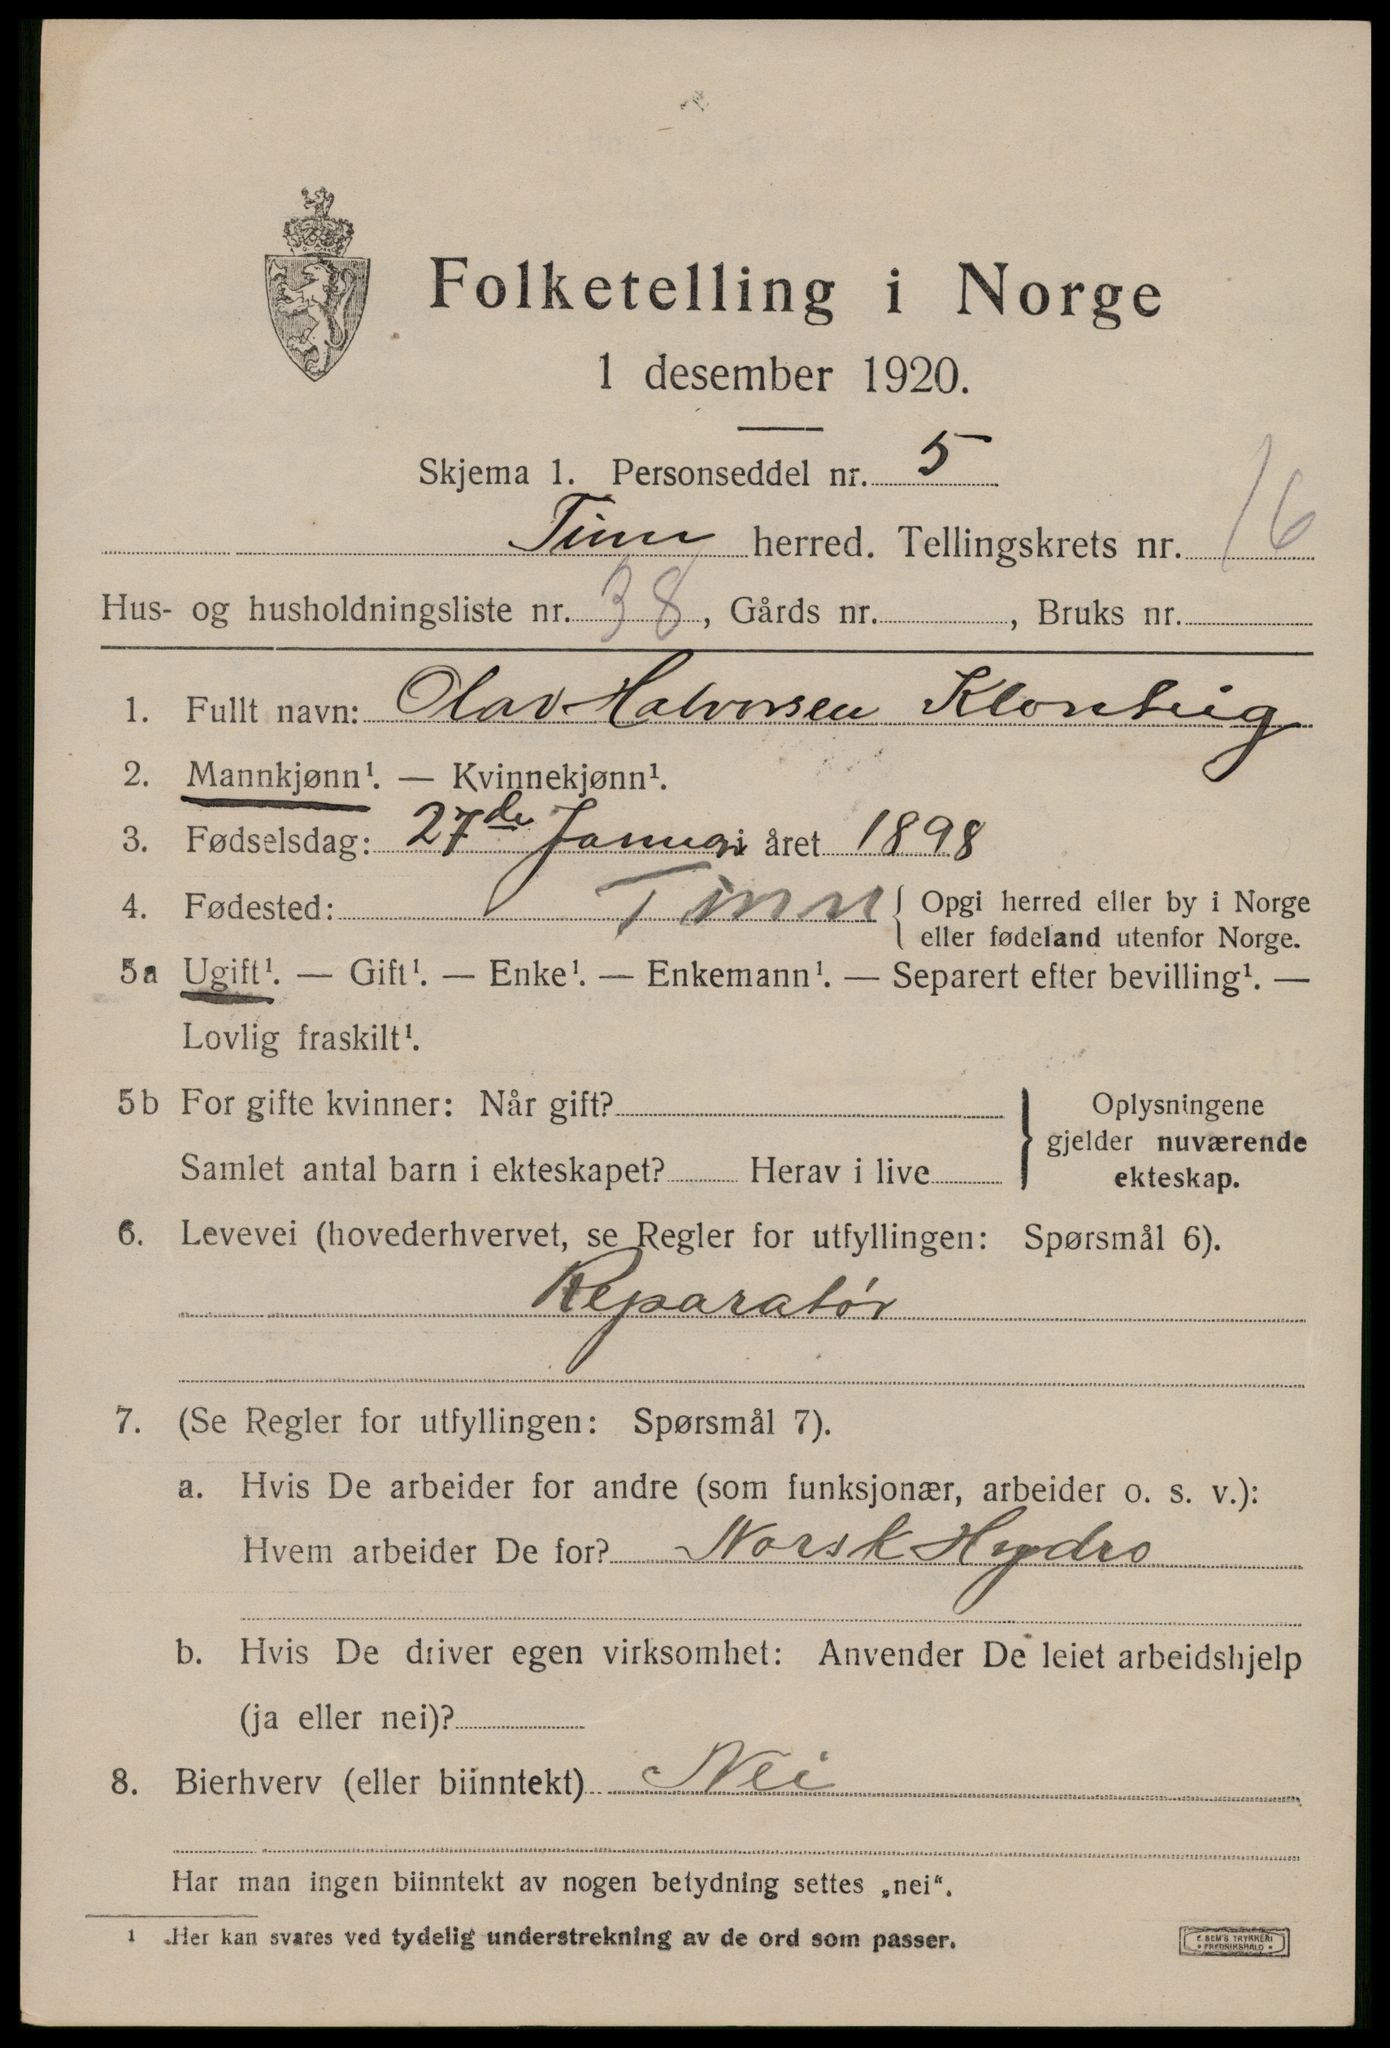 Folketelling i Norge
1 desember 1920.
Skjema 1. Personseddel nr. 5
Tinn herred. Tellingskrets nr. 16
Hus- og husholdningsliste nr. 38, Gårds nr. , Bruks nr.
1. Fullt navn: Olav Halvorsen
2. Mannkjønn¹. — Kvinnekjønn¹.
3. Fødselsdag: 27de Januari året 1898
4. Fødested: Tinn { Opgi herred eller by i Norge
eller fødeland utenfor Norge.
5a Ugift¹. — Gift¹. — Enke¹. — Enkemann¹. — Separert efter bevilling¹. —
Lovlig fraskilt¹.
5b For gifte kvinner: Når gift? } Oplysningene
gjelder nuværende
Samlet antal barn i ekteskapet? Herav i live
ekteskap.
6. Levevei (hovederhvervet, se Regler for utfyllingen: Spørsmål 6).
Reparatør
7. (Se Regler for utfyllingen: Spørsmål 7).
a. Hvis De arbeider for andre (som funksjonær, arbeider o. s. v.):
Hvem arbeider De for? Norsk Hydro
b. Hvis De driver egen virksomhet: Anvender De leiet arbeidshjelp
(ja eller nei)?
8. Bierhverv (eller biinntekt) Nei
Har man ingen biinntekt av nogen betydning settes „nei“.
1 Her kan svares ved tydelig understrekning av de ord som passer.
E. SEM'S TRYKKERI
* FREDRIKSHALD *